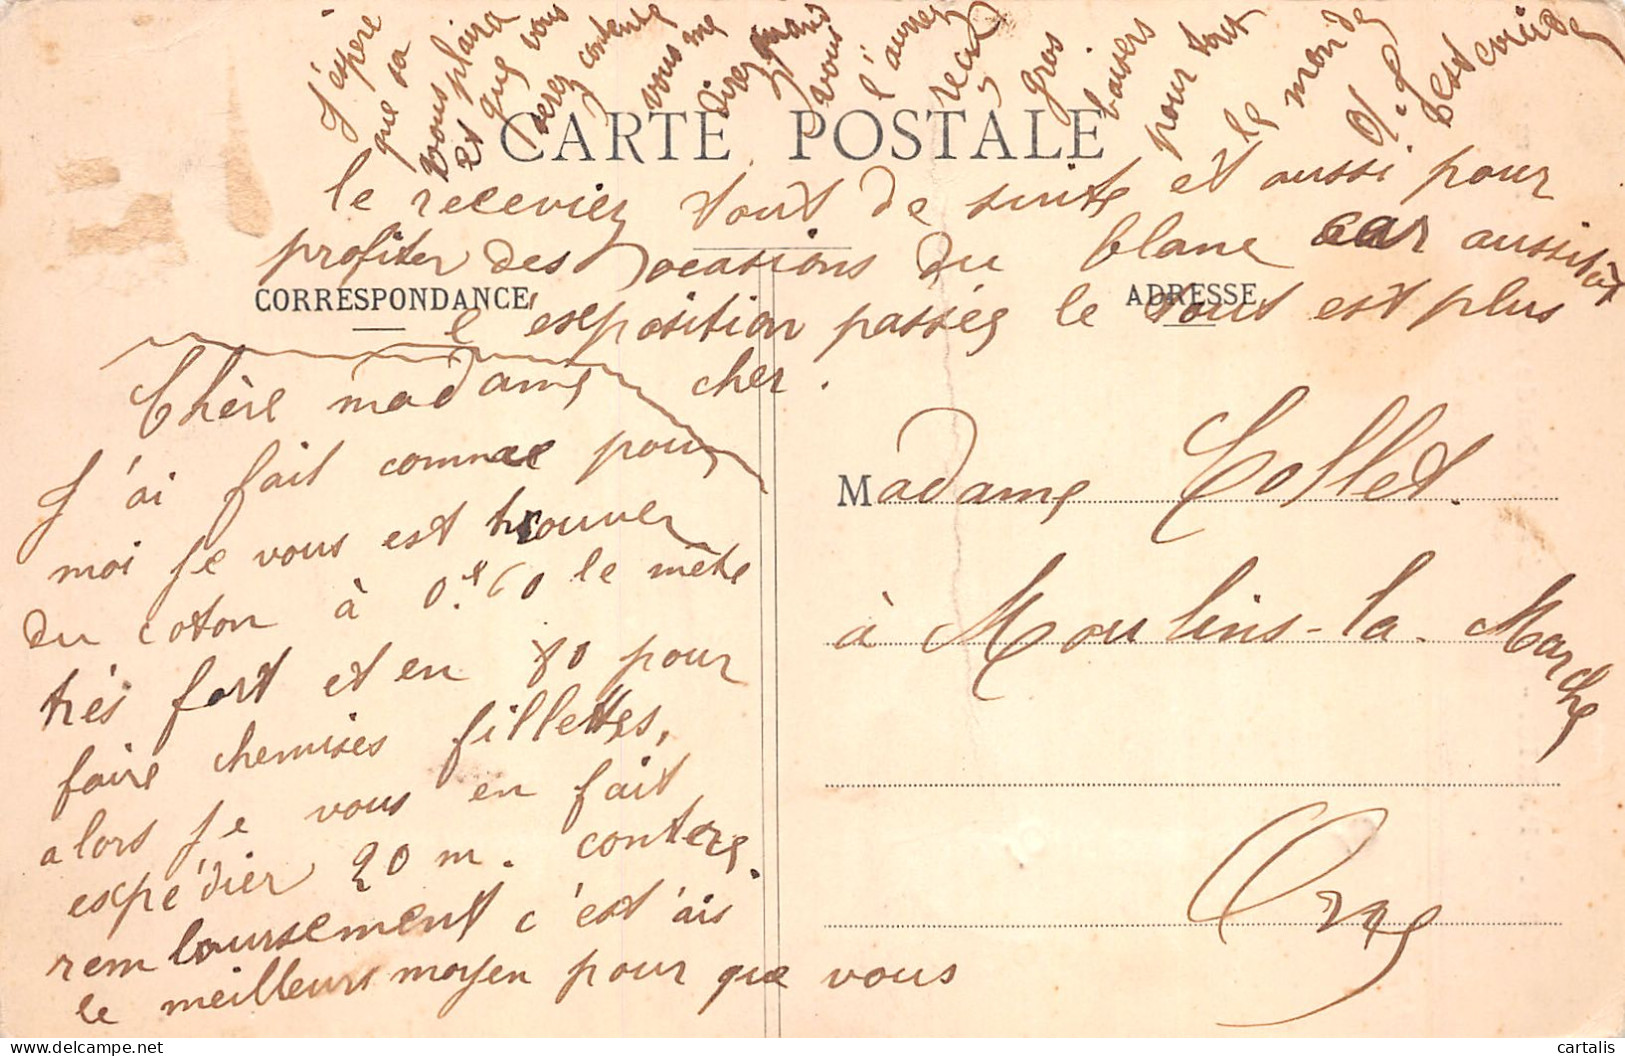 CARTE POSTALE
CORRESPONDANCE
ADRESSE
Chère madame
J'ai fait comme pour
moi je vous est trouver
du coton à 0.f60 le mètre
très fort et en 80 pour
faire chemises fillettes,
alors je vous en fait
expédier 20 m. contere
remboursement c'est'ais
le meilleur moyen pour que vous
le receviez tout de suite et aussi pour
profiter des ocasions du blanc car aussitôt
l'exposition passées le tout est plus
cher.
J'espère
que sa
vous plaira
et que vous
serez contente
vous me
direz quand
vous
l'aurrez
recu
gros
baisers
pour tout
le monde
Madame Collet.
à Moulins-la-Marche
Orne
cartalis